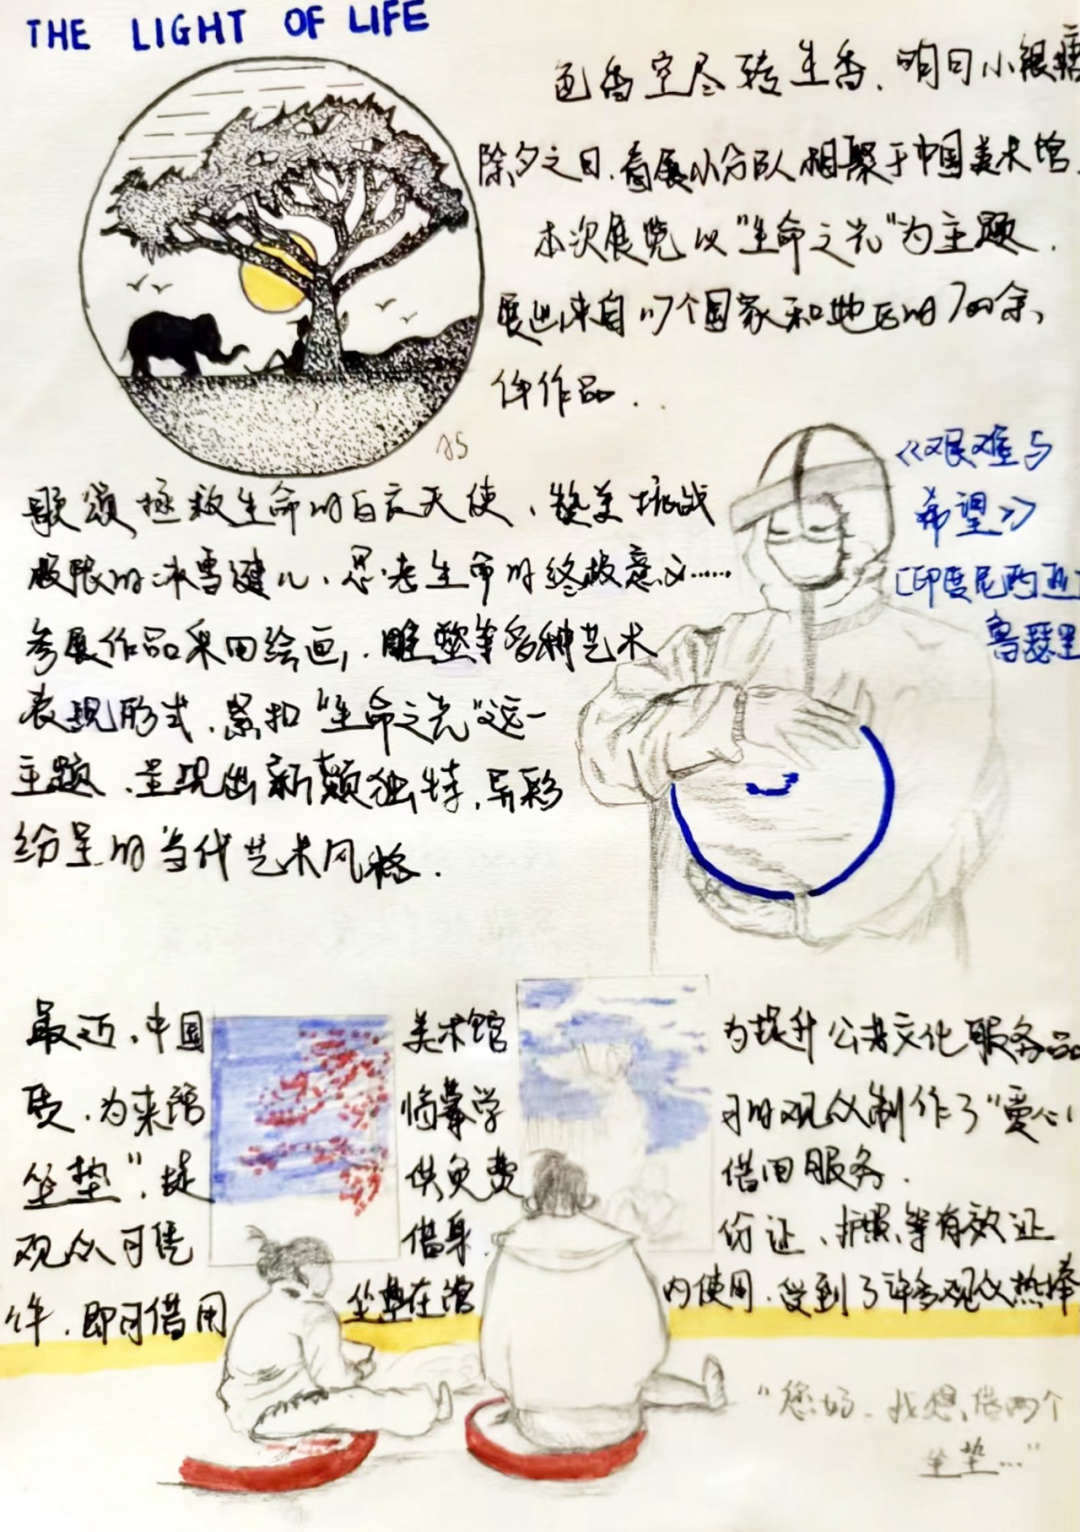 THE LIGHT OF LIFE
色香空尽转生香,明日小银塘
除夕之日,看展小分队相聚于中国美术馆
本次展览以“生命之光”为主题.
展出来自117个国家和地区的700余
件作品.
歌颂拯救生命的白衣天使,赞美挑战
极限的冰雪健儿,思考生命的终极意义……
参展作品采用绘画,雕塑等多种艺术
表现形式,紧扣“生命之光”这一
主题,呈现出新颖独特,异彩
纷呈的当代艺术风格.
《艰难与
希望》
[印度尼西亚]
鲁瑟里
最近,中国美术馆为提升公共文化服务品
质,为来馆临摹学习的观众制作了“爱心
坐垫”,提供免费借用服务.
观众可凭借身份证、护照等有效证
件,即可借用坐垫在馆内使用.受到了许多观众热捧
“您好,我想借两个
坐垫…”